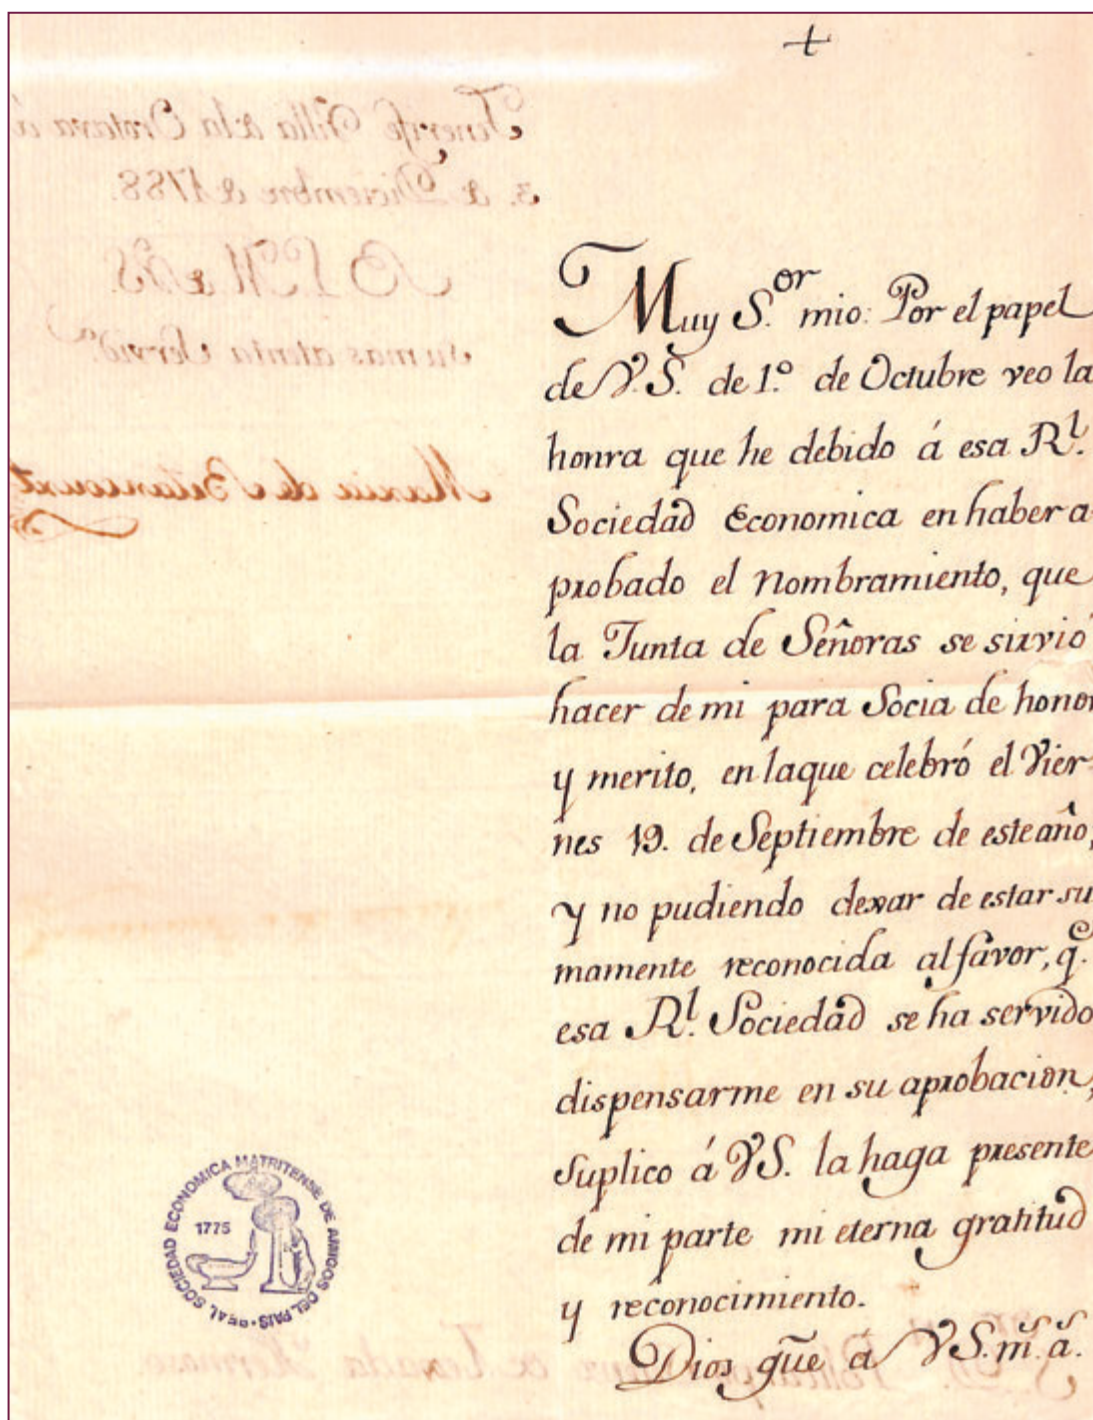 +
Muy S.or mio: Por el papel
de V.S. de 1.o de Octubre veo la
honra que he debido á esa Rl.
Sociedad Economica en haber a
probado el Nombramiento, que
la Junta de Señoras se sirvió
hacer de mi para Socia de honor
y merito, en la que celebró el Vier
nes 19. de Septiembre de este año,
y no pudiendo dexar de estar su
mamente reconocida al favor, q.e
esa Rl. Sociedad se ha servido
dispensarme en su aprobacion,
suplico á VS. la haga presente
de mi parte mi eterna gratitud
y reconocimiento.
Dios gũe á VS. m.s a.s
Tenerife Villa de la Orotava á
3. de Diciembre de 1788.
B L M de VS.
su mas atenta Servid.ra
Maria de Betancourt
REAL SOCIEDAD ECONOMICA MATRITENSE DE AMIGOS DEL PAIS
1775